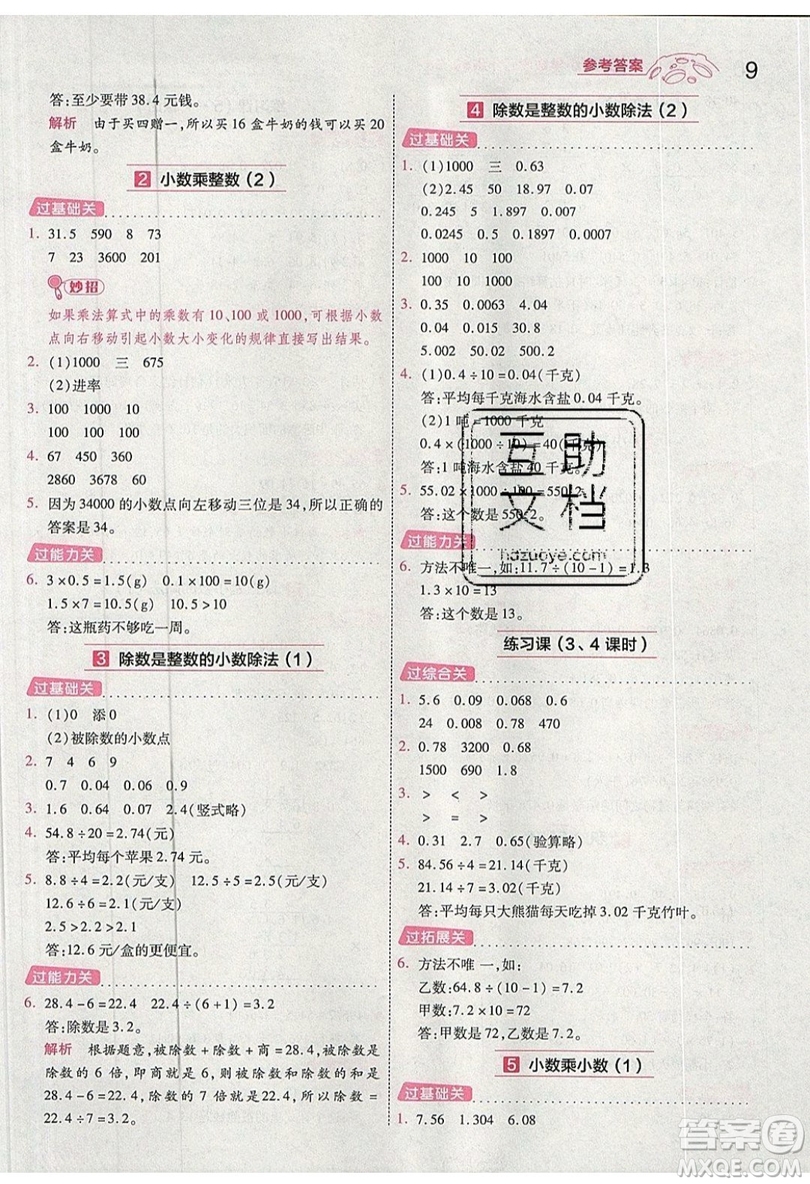 参考答案 9
答:至少要带 38.4 元钱。
解析 由于买四赠一,所以买 16 盒牛奶的钱可以买 20
盒牛奶。
2 小数乘整数(2)
过基础关
1. 31.5 590 8 73
7 23 3600 201
妙招
如果乘法算式中的乘数有 10、100 或 1000,可根据小数
点向右移动引起小数大小变化的规律直接写出结果。
2. (1)1000 三 675
(2)进率
3. 100 1000 10
100 100 1000
4. 67 450 360
2860 3678 60
5. 因为 34000 的小数点向左移动三位是 34,所以正确的
答案是 34。
过能力关
6. 3×0.5=1.5(g) 0.1×100=10(g)
1.5×7=10.5(g) 10.5>10
答:这瓶药不够吃一周。
3 除数是整数的小数除法(1)
过基础关
1. (1)0 添0
(2)被除数的小数点
2. 7 4 6 9
0.7 0.04 0.06 0.09
3. 1.6 0.64 0.06 2.4(竖式略)
4. 54.8÷20=2.74(元)
答:平均每个苹果 2.74 元。
5. 8.8÷4=2.2(元/支) 12.5÷5=2.5(元/支)
12.6÷6=2.1(元/支)
2.5>2.2>2.1
答:12.6 元/盒的更便宜。
过能力关
6. 28.4-6=22.4 22.4÷(6+1)=3.2
答:除数是 3.2。
解析 根据题意,被除数+除数+商=28.4,被除数是
除数的 6 倍,即商就是 6,所以被除数与除数的和是
28.4-6=22.4,且它们的和是除数的 7 倍,所以除数是
22.4÷7=3.2。
4 除数是整数的小数除法(2)
过基础关
1. (1)1000 三 0.63
(2)2.45 50 18.97 0.07
0.245 5 1.897 0.007
0.0245 0.5 0.1897 0.0007
2. 100 1000 10
100 10 1000
3. 0.35 0.0063 4.04
0.21 0.007 0.08
5.002 50.02 500.2
4. (1)0.4÷10=0.04(千克)
答:平均每千克海水含盐 0.04 千克。
(2)1 吨=1000 千克
0.4×(1000÷10)=40(千克)
答:1 吨海水含盐 40 千克。
5. 55.02×1000÷100=550.2
答:这个数是 550.2。
过能力关
6. 方法不唯一,如:11.7÷(10-1)=1.3
1.3×10=13
答:这个数是 13。
练习课(3、4 课时)
过综合关
1. 5.6 0.09 0.068 0.06
24 0.008 0.78 470
2. 0.78 3200 0.68
1500 690 1.8
3. > < >
> = >
4. 0.31 2.7 0.65(验算略)
5. 84.56÷4=21.14(千克)
21.14÷7=3.02(千克)
答:平均每只大熊猫每天吃掉 3.02 千克竹叶。
过拓展关
6. 方法不唯一,如:
乙数:64.8÷(10-1)=7.2
甲数:7.2×10=72
答:甲数是 72,乙数是 7.2。
5 小数乘小数(1)
过基础关
1. 7.56 1.304 6.08
互助
文档
hdzuoye.com
答案圈
MXQE.COM